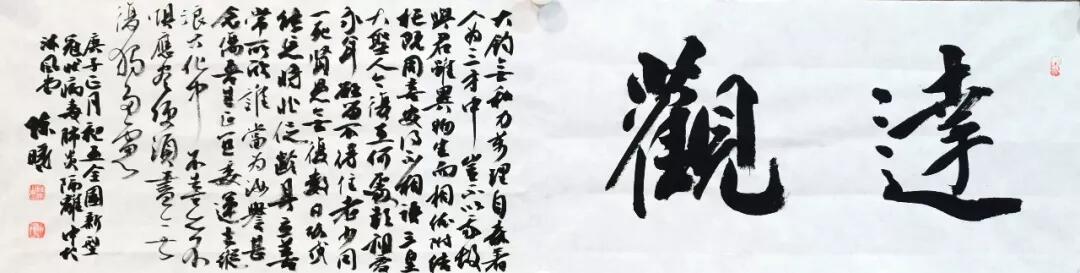 達觀
大鈞無私力萬理自森著
人為三才中豈不以我故
與君雖異物生而相依附結
托既同喜安得不相語三皇
大聖人今復在何處彭祖
永年欲留不得住老少同
一死賢愚無復數日醉或
能忘將非促齡具立善
常所欣誰當為汝譽甚
念傷吾生正宜委運去縱
浪大化中不喜亦不
懼應盡便須盡無
復獨多慮
庚子正月初五全國新型
冠狀病毒肺炎隔離中於
沐風堂 陳曦